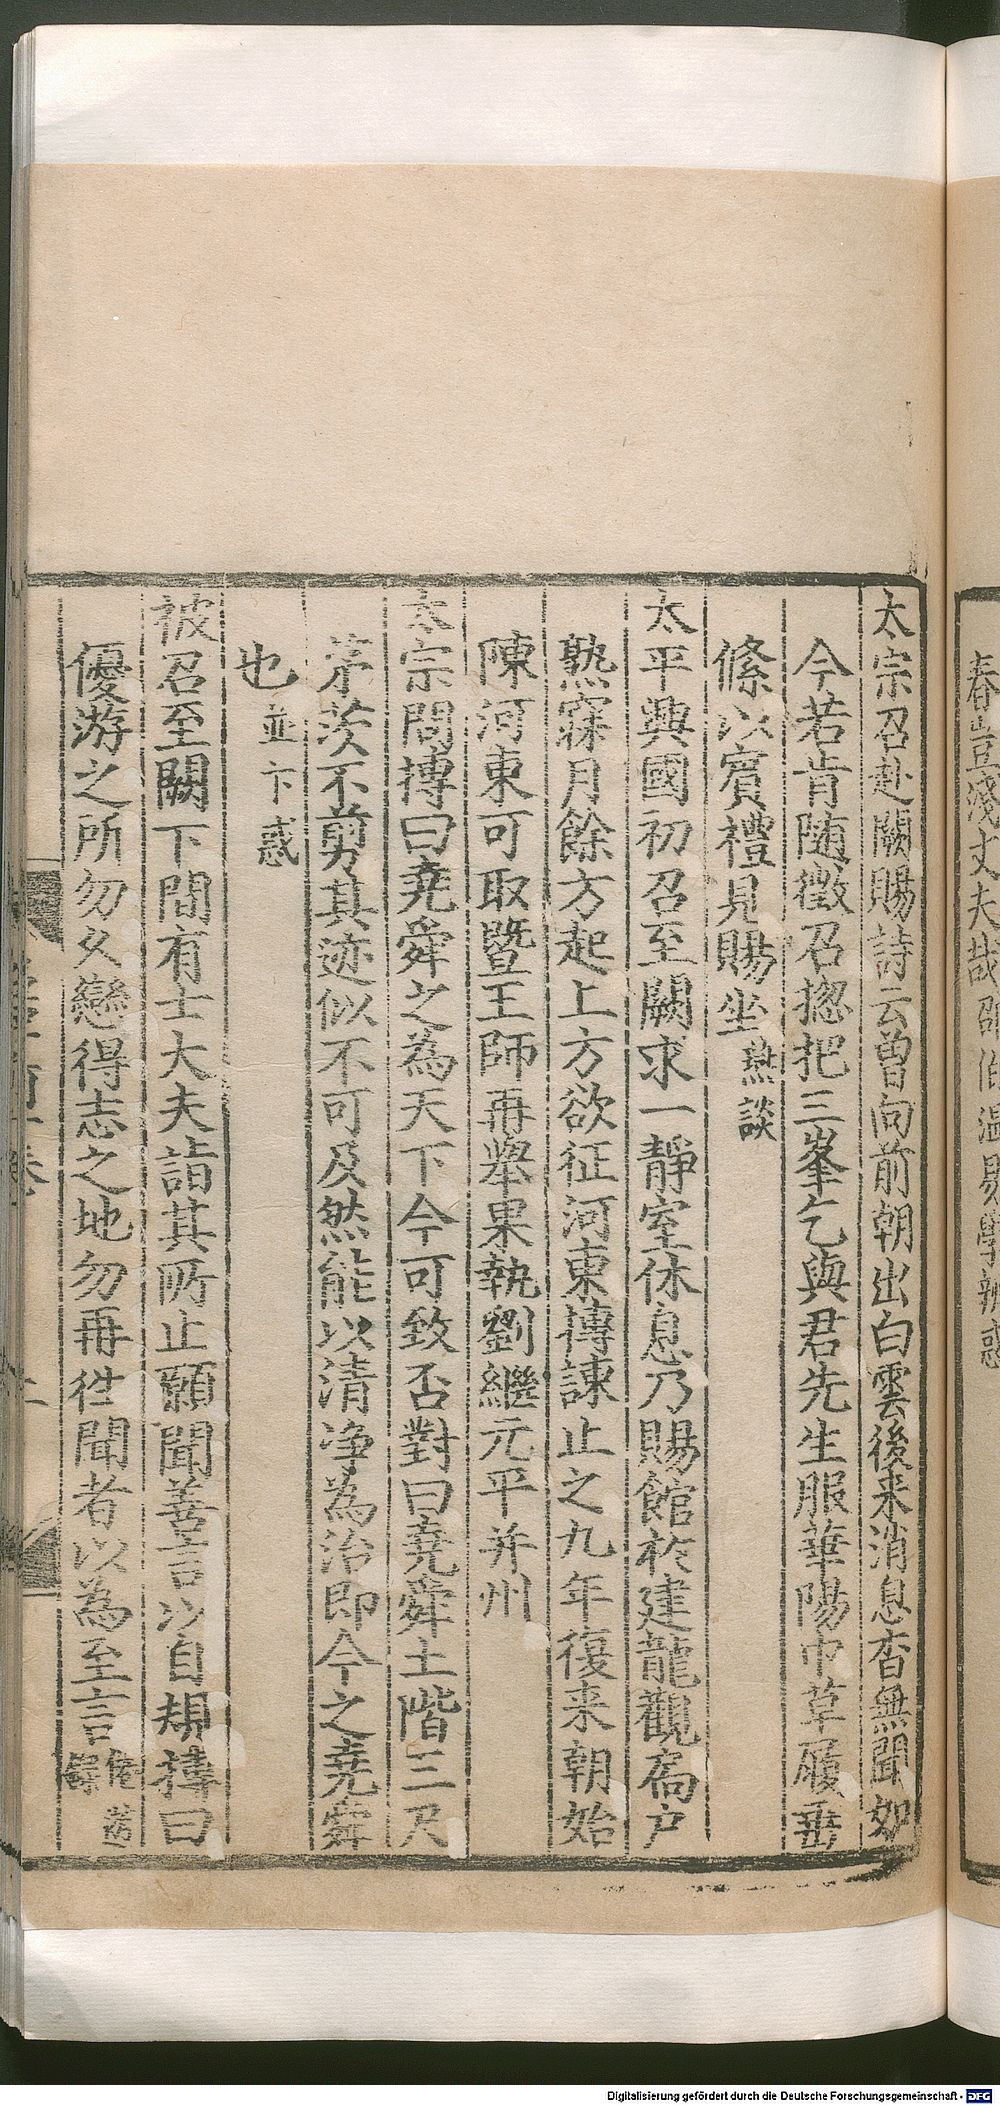 春豈淺丈夫哉邵伯温易學辨惑
太宗召赴闕賜詩云曾向前朝出白雲後来消息杳無聞如
今若肯随徵召揔把三峯乞與君先生服華陽巾草履垂
絛以賓禮見賜坐 燕談
太平興國初召至闕求一靜室休息乃賜館於建龍觀扃户
熟寐月餘方起上方欲征河東摶諫止之九年復来朝始
陳河東可取曁王師再舉果執劉繼元平并州
太宗問摶曰堯舜之為天下今可致否對曰堯舜土階三尺
茅茨不剪其迹似不可及然能以清净為治即今之堯舜
也 並卞惑
被召至闕下間有士大夫詣其所止願聞善言以自規摶曰
優游之所勿乆戀得志之地勿再徃聞者以為至言
Digitalisierung gefördert durch die Deutsche Forschungsgemeinschaft - DFG